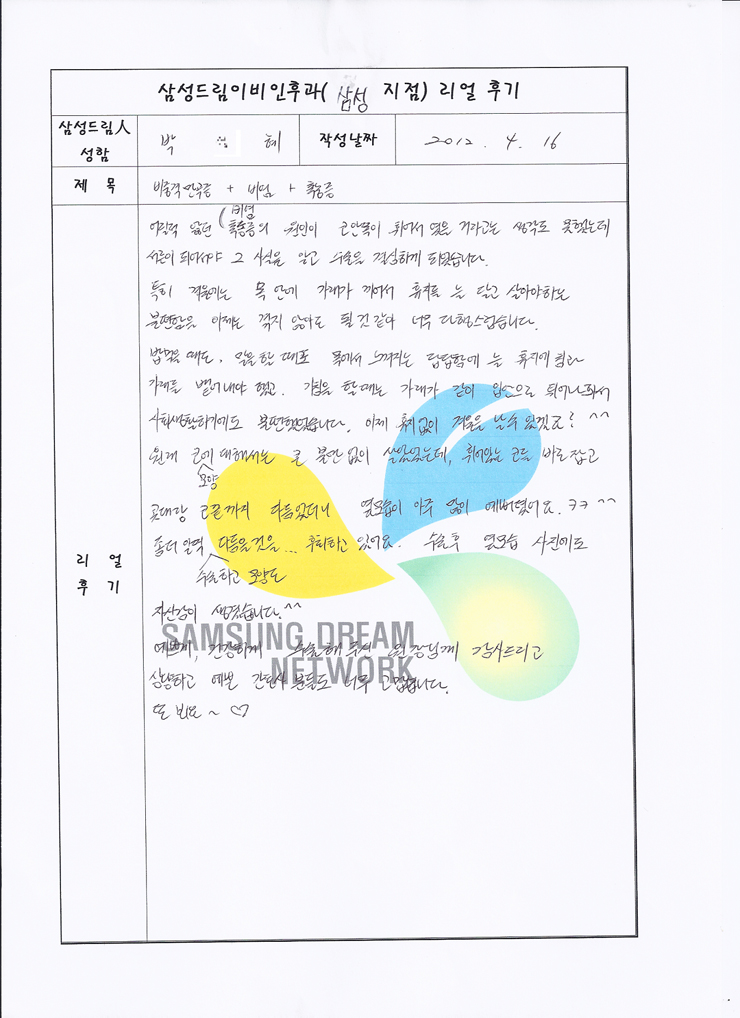 삼성드림이비인후과( 삼성 지점) 리얼 후기
삼성드림人 성함
박 혜
작성날짜
2012. 4. 16
제 목
비중격만곡증 + 비염 + 축농증
리 얼 후 기
어릴적 앓던 (비염 축농증의 원인이 코안쪽이 휘어서 였을 거라고는 생각도 못했는데
서른이 되어서야 그 사실을 알고 수술을 결심하게 되었습니다.
특히 겨울에는 목 안에 가래가 끼어서 휴지를 늘 달고 살아야하는
불편함을 이제는 겪지 않아도 될 것 같아 너무 다행스럽습니다.
밥먹을 때도, 일을 할 때도 목에서 느껴지는 답답함에 늘 휴지에 침과
가래를 뱉어내야 했고. 기침을 할때는 가래가 같이 입으로 튀어나와서
사회생활하기에도 불편했었습니다. 이제 휴지없이 겨울을 날 수 있겠죠? ^^
원래 코에 대해서는 큰 불만 없이 살았었는데, 휘어있는 코를 바로잡고
모양
콧대랑 코끝까지 다듬었더니 옆모습이 아주 많이 예뻐졌어요. ㅋㅋ ^^
좀더 일찍 다듬을것을... 후회하고 있어요. 수술후 옆모습 사진에도
수술하고 모양도
자신감이 생겼습니다.^^
예쁘게, 건강하게 수술해 주신 원장님께 감사드리고
상냥하고 예쁜 간호사 분들도 너무 고맙습니다.
또 뵈요 ~ ♡
SAMSUNG DREAM
NETWORK